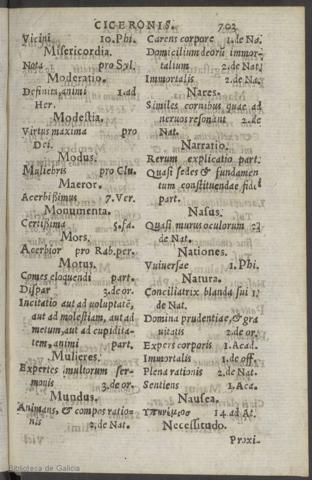 CICERONIS. 703
Vicini 10. Phi.
Misericordia.
Nota pro Syl.
Moderatio.
Definita, animi 1. ad
Her.
Modestia.
Virtus maxima pro
Dei.
Modus.
Muliebris pro Clu.
Maeror.
Acerbißimus 7. Ver.
Monumenta.
Certißima 5. fa.
Mors.
Acerbior pro Rab. per.
Motus.
Comes eloquendi part.
Dispar 3. de or.
Incitatio aut ad voluptatē,
aut ad molestiam, aut ad
metum, aut ad cupidita-
tem, animi part.
Mulieres.
Expertes multorum ser-
monis 3. de or.
Mundus.
Animans, & compos ratio-
nis 2. de Nat.
Carens corpore 1. de Na.
Domicilium deorū immor-
talium 2. de Nat.
Immortalis 2. de Na.
Nares.
Similes cornibus, quae ad
neruos resonant 2. de
Nat.
Narratio.
Rerum explicatio part.
Quasi sedes & fundamen
tum constituendae fidei
part.
Nasus.
Quasi murus oculorum 2
de Nat.
Nationes.
Vniuersae 1. Phi.
Natura.
Conciliatrix blanda sui 1.
de Nat.
Domina prudentiae, & gra
uitatis 2. de or.
Expers corporis 1. Acad.
Immortalis 1. de off.
Plena rationis 2. de Nat.
Sentiens 1. Aca.
Nausea.
14. ad At.
Necessitudo.
Proxi-
Biblioteca de Galicia